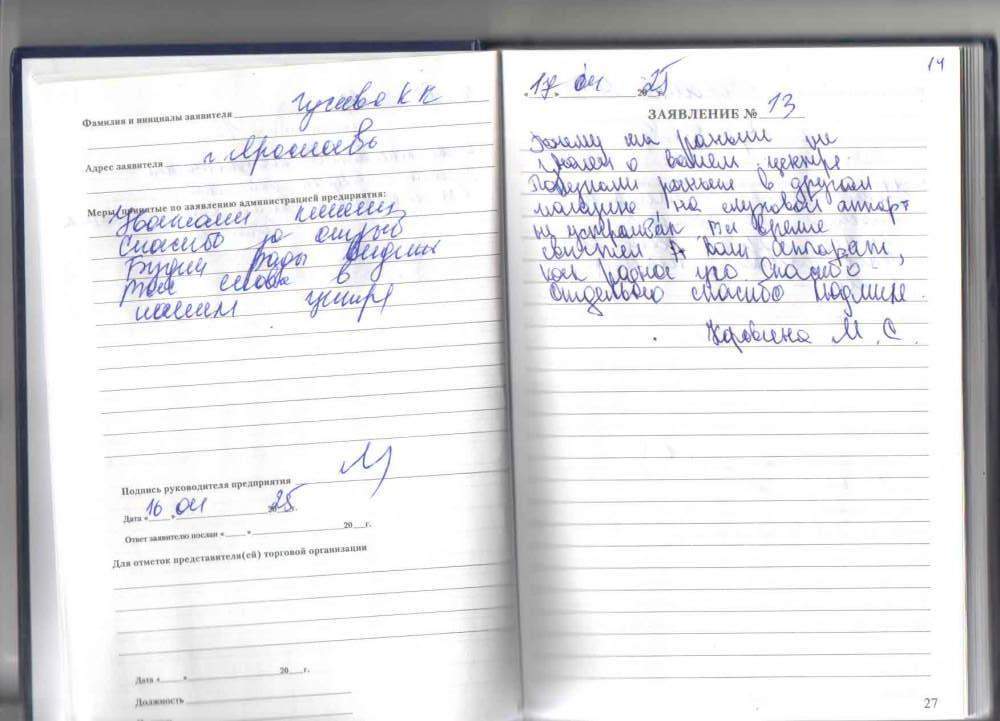 Фамилия и инициалы заявителя Гусева К К
Адрес заявителя г. Ярославль
Меры, принятые по заявлению администрацией предприятия:
Уважаемый клиент
Спасибо за отзыв
Будем рады видеть
Вас снова в
нашем центре
Подпись руководителя предприятия
Дата « 16 » 04 2025 г.
Ответ заявителю послан « » 20 г.
Для отметок представителя(ей) торговой организации
Дата « » 20 г.
Должность
14
« 17 » 04 2025 г.
ЗАЯВЛЕНИЕ № 13
Почему мы раньше не
узнали о вашем центре.
Покупали раньше в другом
магазине на слуховой аппарат
не устраивал все время
свистел А ваш аппарат,
как родное ухо Спасибо
Отдельное спасибо Людмиле.
М. С.
27